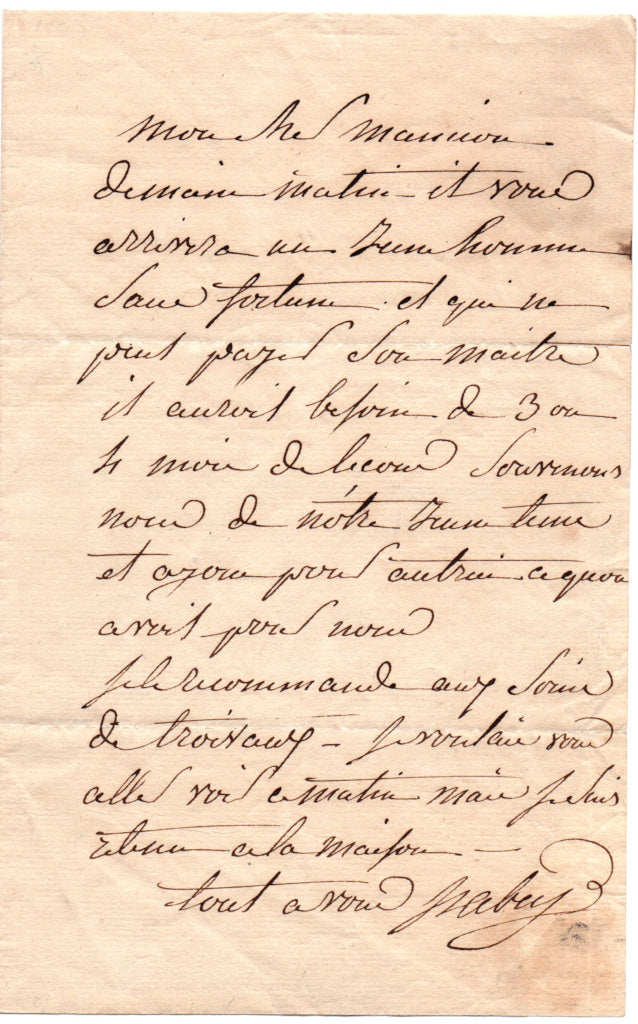 mon cher mansion
demain matin - il vous
arrivera un jeune homme
sans fortune et qui ne
peut payer son maitre
il auroit besoin de 3 ou
4 mois de lecons souvenons
nous de nôtre jeune tems
et ayons pour autrui ce quon
avoit pour nous
je le recommande aux soins
de - je voulais vous
aller voir ce matin mais je suis
retenu a la maison -
tout a vous isabey